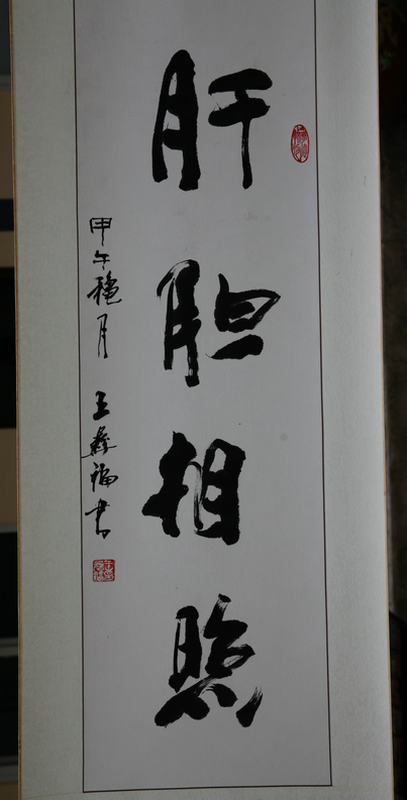 肝胆相照
甲午穐月 王彝福书